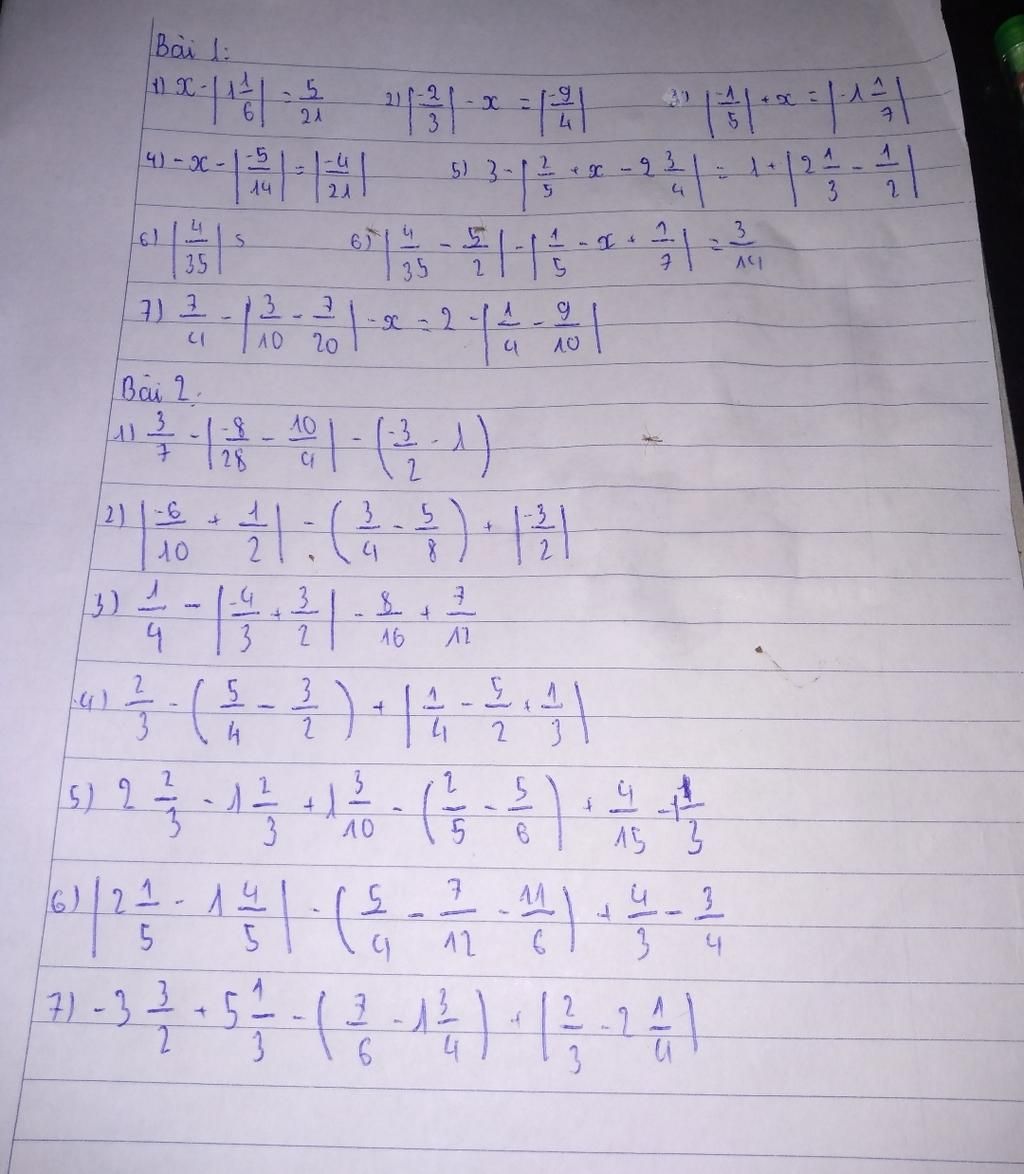 Bài 1:
1) x - |1 1/6| = 5/21 2) |-2/3| - x = |-9/4| 3) |-1/5| + x = |-1 1/7|
4) - x - |-5/14| = |-4/21| 5) 3 - |2/5 + x - 2 3/4| = 1 + |2 1/3 - 1/2|
6) |4/35| s 6) |4/35 - 5/2| - |1/5 - x + 1/7| = 3/14
7) 7/4 - |3/10 - 7/20| - x = 2 - |1/4 - 9/10|
Bài 2:
1) 3/7 - |-8/28 - 10/4| - (-3/2 - 1)
2) |-6/10 + 1/2| - (3/4 - 5/8) + |-3/2|
3) 1/4 - |-4/3 + 3/2| - 8/16 + 7/12
4) 2/3 - (5/4 - 3/2) + |1/4 - 5/2 + 1/3|
5) 2 2/3 - 1 2/3 + 1 3/10 - (2/5 - 5/6) + 4/15 - 1/3
6) |2 1/5 - 1 4/5| - (5/4 - 7/12 - 11/6) + 4/3 - 3/4
7) - 3 3/2 + 5 1/3 - (7/6 - 1 3/4) + |2/3 - 2 1/4|